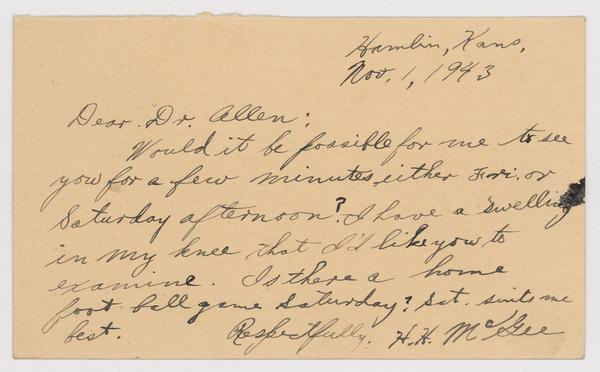 Hamlin, Kans,
Nov. 1, 1943
Dear Dr. Allen:
Would it be possible for me to see
you for a few minutes, either Fri. or
Saturday afternoon? I have a swelling
in my knee that I'd like you to
examine. Is there a home
foot-ball game Saturday? Sat. suits me
best. Respectfully. H.H. McGee